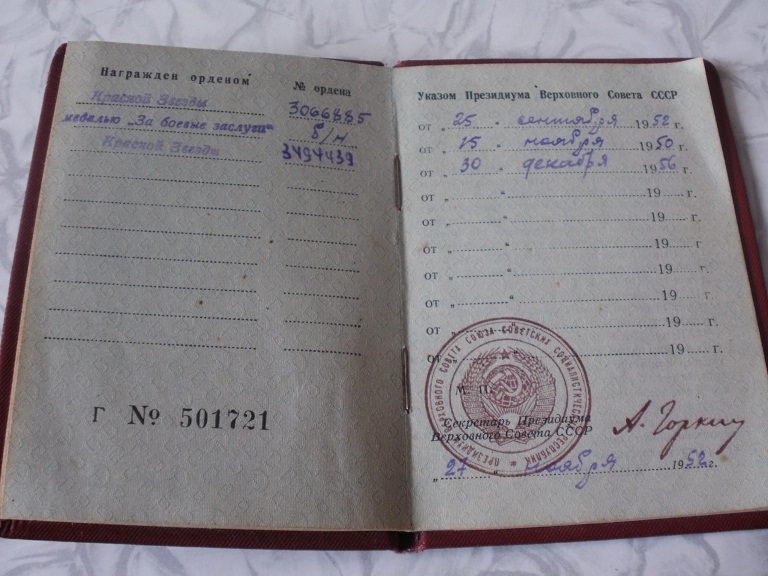 Награжден орденом
№ ордена
Красной Звезды
3066885
медалью „За боевые заслуги"
б/н
Красной Звезды
3494439
Г № 501721
Указом Президиума Верховного Совета СССР
от „ 25 " сентября 1952 г.
от „ 15 " ноября 1950 г.
от „ 30 " декабря 1956 г.
от „ " 19 г.
от „ " 19 г.
от „ " 19 г.
от „ " 19 г.
от „ " 19 г.
от „ " 19 г.
от „ " 19 г.
М. П.
ПРЕЗИДИУМ ВЕРХОВНОГО СОВЕТА СОЮЗА СОВЕТСКИХ СОЦИАЛИСТИЧЕСКИХ РЕСПУБЛИК
Секретарь Президиума
Верховного Совета СССР
А. Горкин
„ 27 " ноября 1952 г.